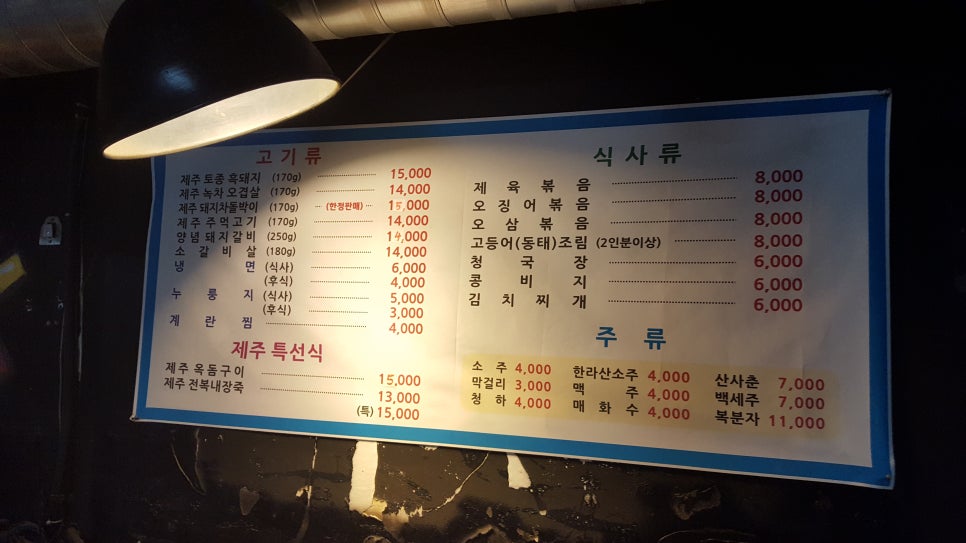 고기류
제주 토종 흑돼지 (170g) 15,000
제주 녹차 오겹살 (170g) 14,000
제주 돼지차돌박이 (170g) (한정판매) 15,000
제주 주먹고기 (170g) 14,000
양념돼지갈비 (250g) 14,000
소갈비살 (180g) 14,000
냉면 (식사) 6,000
(후식) 4,000
누룽지 (식사) 5,000
(후식) 3,000
계란찜 4,000
제주 특선식
제주 옥돔구이 15,000
제주 전복내장죽 13,000
(특) 15,000
식사류
제육볶음 8,000
오징어볶음 8,000
오삼볶음 8,000
고등어(동태)조림 (2인분이상) 8,000
청국장 6,000
콩비지 6,000
김치찌개 6,000
주류
소주 4,000 한라산소주 4,000 산사춘 7,000
막걸리 3,000 맥주 4,000 백세주 7,000
청하 4,000 매화수 4,000 복분자 11,000